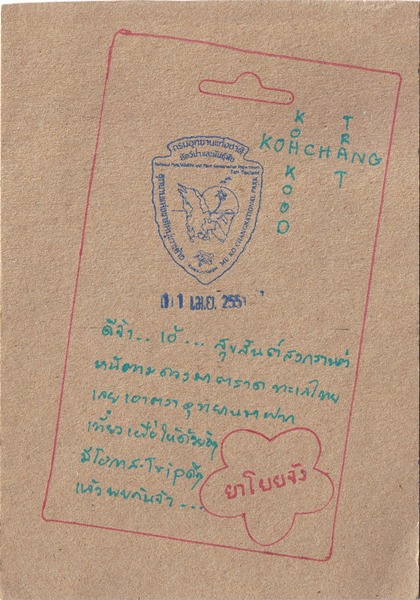 KOH KOOD
KOHCHANG
TRAT
กรมอุทยานแห่งชาติ
สัตว์ป่า และพันธุ์พืช
MU KO CHANG NATIONAL PARK
1 เม.ย. 2551
ดีจ้า.. เอ้ ... สุขสันต์สงกรานต์
ตราด ทะเลไทย
เลย เอาตราอุทยานมาฝาก
เที่ยวเผื่อให้ด้วย
มีโอกาส Trip
แล้วพบกันจ้า ...
ยาโยยจัง